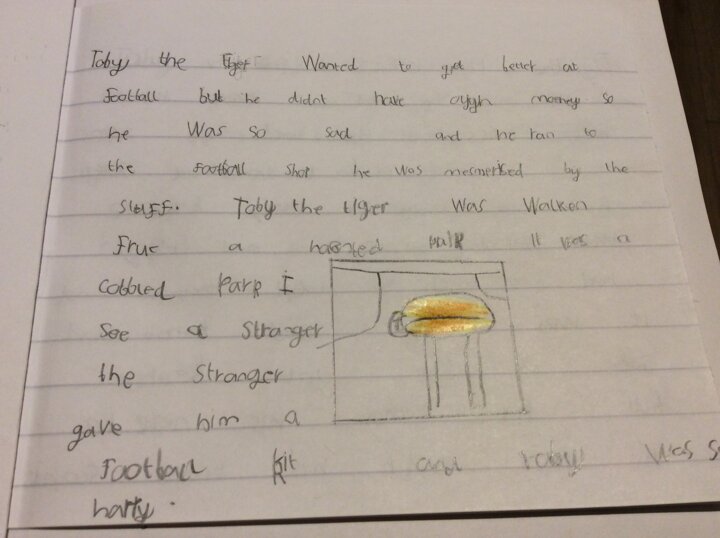 Toby the tiger Wanted to get better at
football but he didnt have oygh money so
he Was so sad and he ran to
the football shop he was mesmerised by the
stuff. Toby the tiger Was Walken
frue a haonted park It was a
cobbled park I
See a Stranger
the Stranger
gave him a
football kit and toby was s
harty.